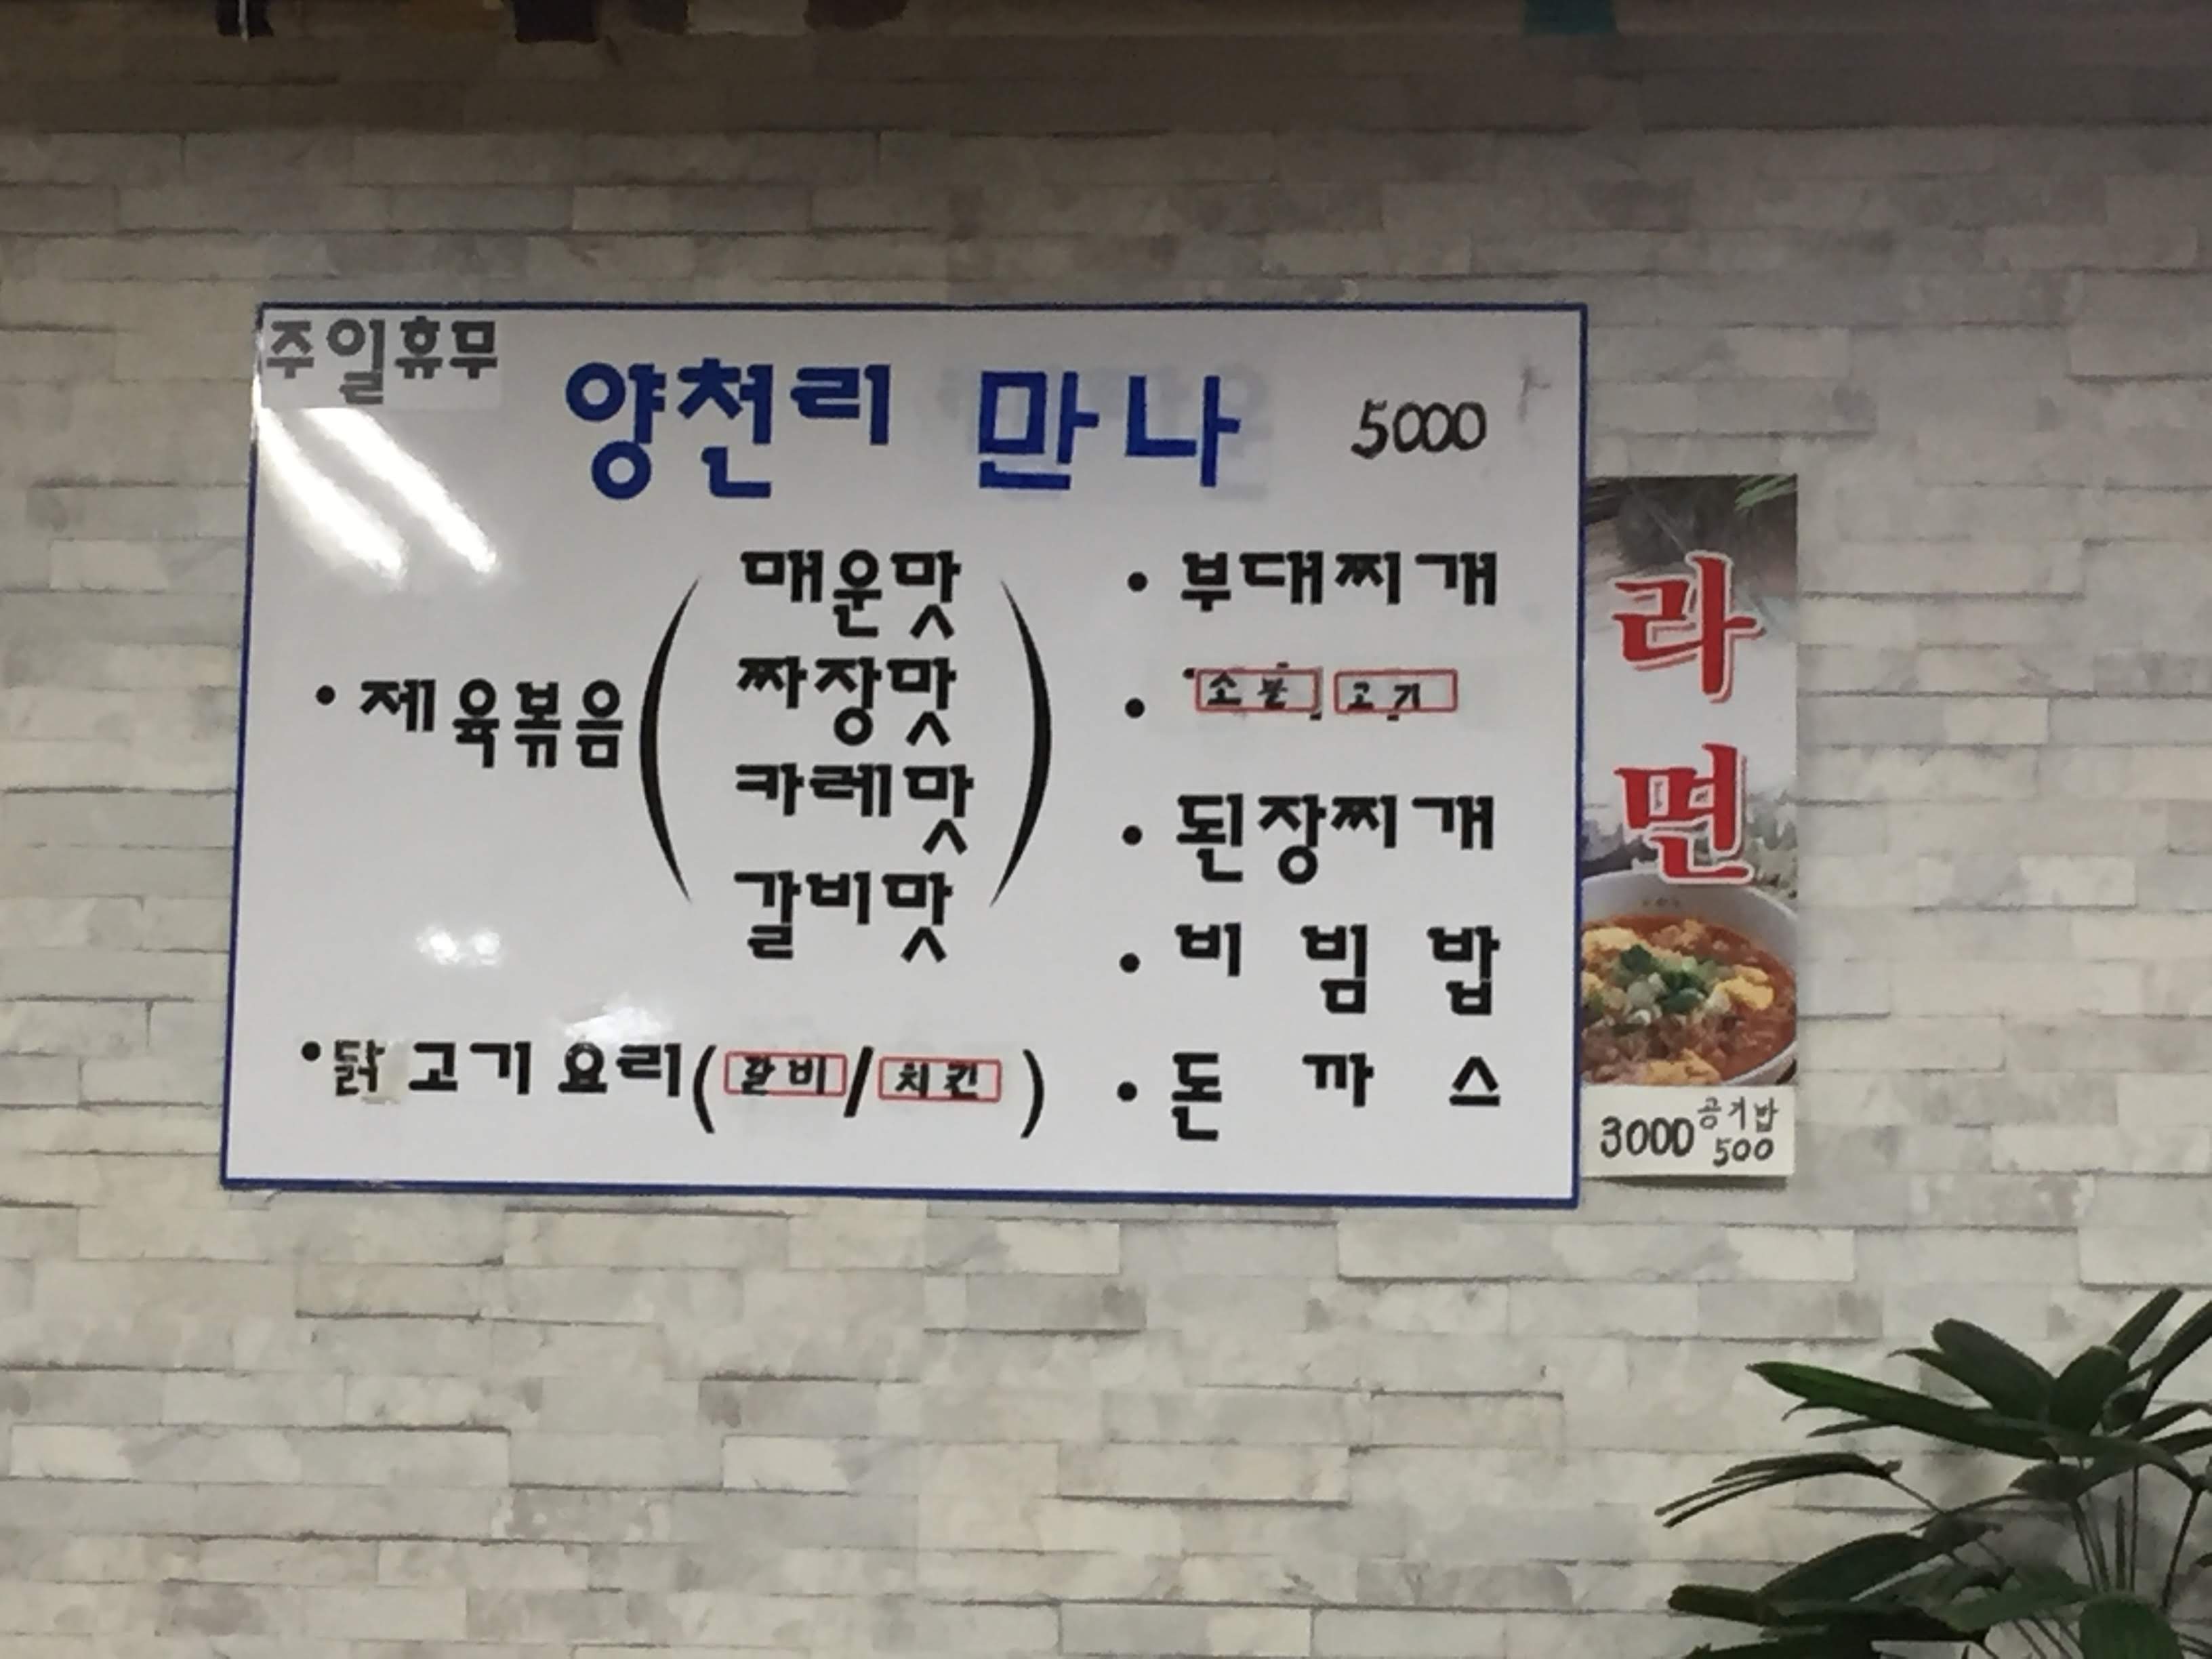 주일휴무
양천리 만나 5000
• 제육볶음 (매운맛
짜장맛
카레맛
갈비맛)
• 닭고기요리(갈비/치킨)
• 부대찌개
• 소불고기
• 된장찌개
• 비빔밥
• 돈까스
라면
3000 공기밥 500